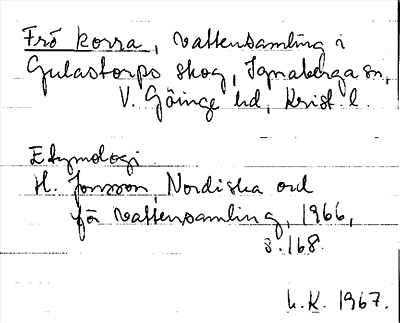 Frö korra, vattensamling i
Gulastorps skog, Ignaberga sn,
V. Göinge hd, Krist. l.
Etymologi
H. Jonsson, Nordiska ord
för vattensamling, 1966,
s. 168.
L.K. 1967.